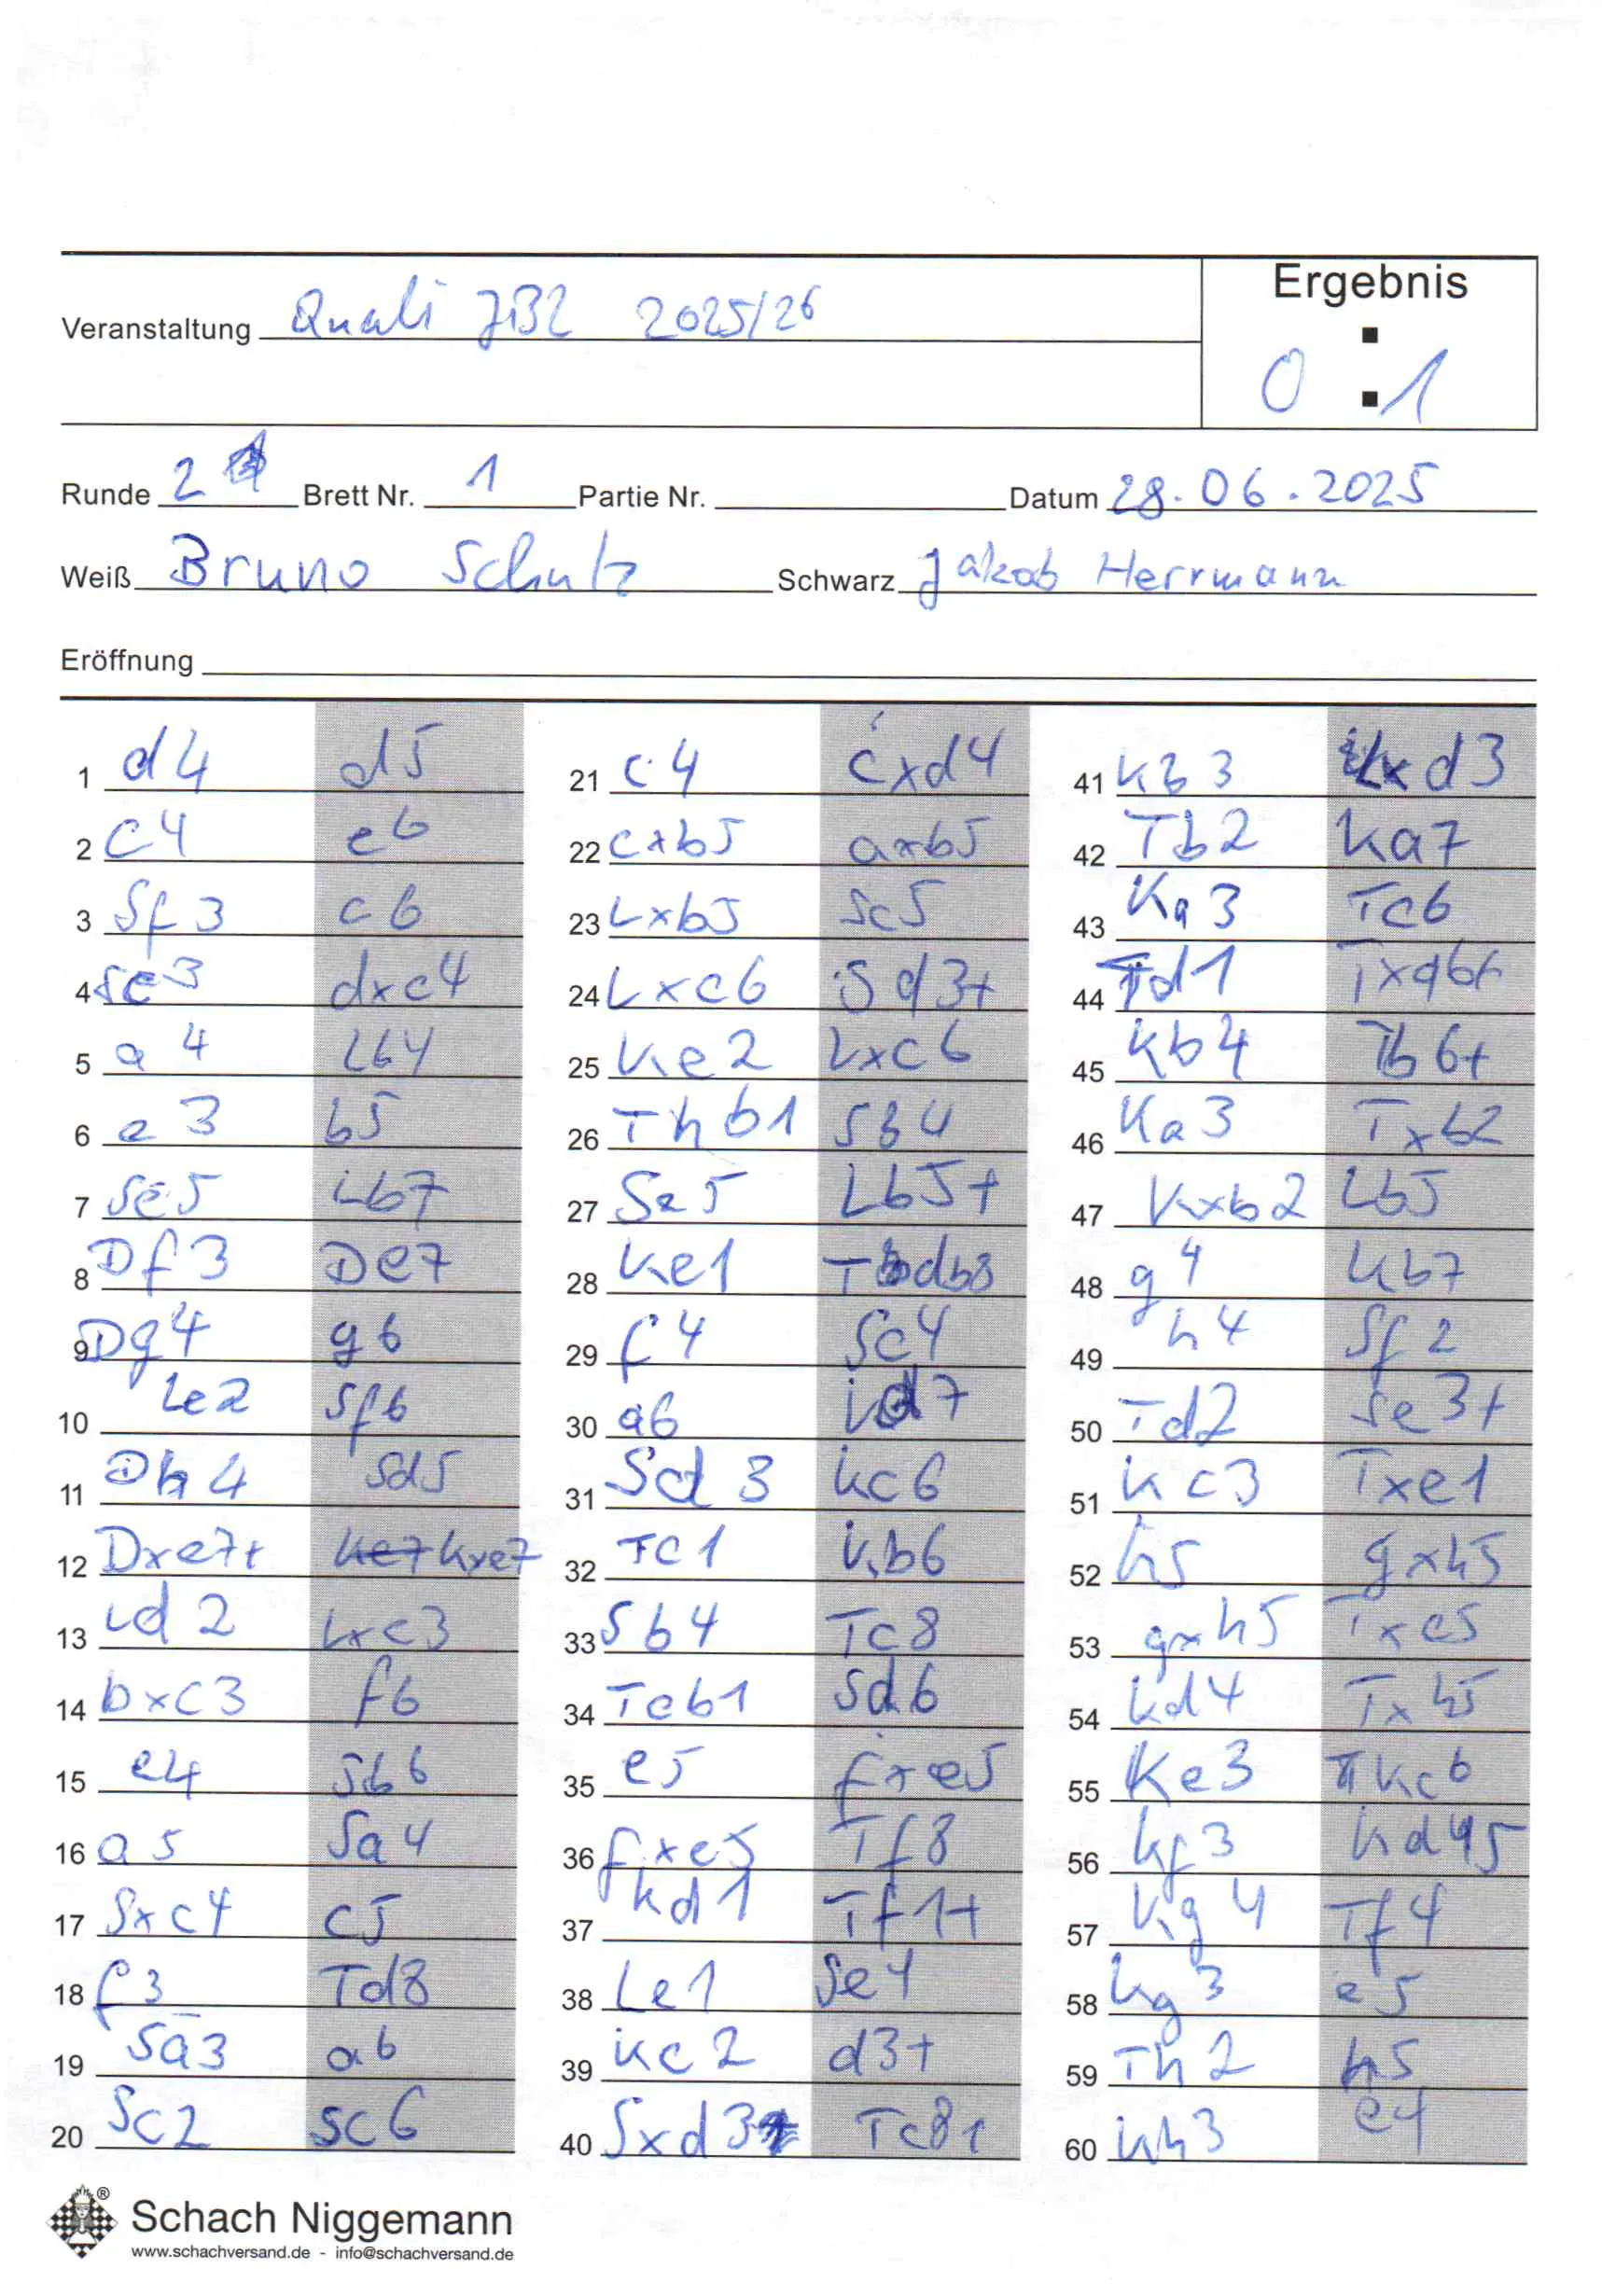 Ergebnis
Veranstaltung Quali JBL 2025/26
0 : 1
Runde 2 Brett Nr. 1 Partie Nr. Datum 28.06.2025
Weiß Bruno Schulz Schwarz Jakob Herrmann
Eröffnung
1 d4 d5 21 c4 cxd4 41 Kb3 Lxd3
2 c4 e6 22 cxb5 axb5 42 Tb2 Ka7
3 Sf3 c6 23 Lxb5 Sc5 43 Ka3 Tc6
4 Sc3 dxc4 24 Lxc6 Sd3+ 44 Td1 Txa6+
5 a4 Lb4 25 Ke2 Lxc6 45 Kb4 Tb6+
6 e3 b5 26 Thb1 Sb4 46 Ka3 Txb2
7 Se5 Lb7 27 Se5 Lb5+ 47 Kxb2 Lb5
8 Df3 De7 28 Ke1 Tdb8 48 g4 Kb7
9 Dg4 g6 29 f4 Sc4 49 h4 Sf2
10 Le2 Sf6 30 a6 Ld7 50 Td2 Se3+
11 Dh4 Sd5 31 Sd3 Kc6 51 Kc3 Txe1
12 Dxe7+ Ke7 Kxe7 32 Tc1 Kb6 52 h5 gxh5
13 Ld2 Lxc3 33 Sb4 Tc8 53 gxh5 Txe5
14 bxc3 f6 34 Tcb1 Sd6 54 Kd4 Txh5
15 e4 Sb6 35 e5 fxe5 55 Ke3 Kc6
16 a5 Sa4 36 fxe5 Tf8 56 Kf3 Kd5
17 Sxc4 c5 37 Kd1 Tf1+ 57 Kg4 Tf4
18 f3 Td8 38 Le1 Se4 58 Kg3 e5
19 Sa3 a6 39 Kc2 d3+ 59 Th2 h5
20 Sc2 Sc6 40 Sxd3 Tc8+ 60 Kh3 e4
® Schach Niggemann
www.schachversand.de - info@schachversand.de